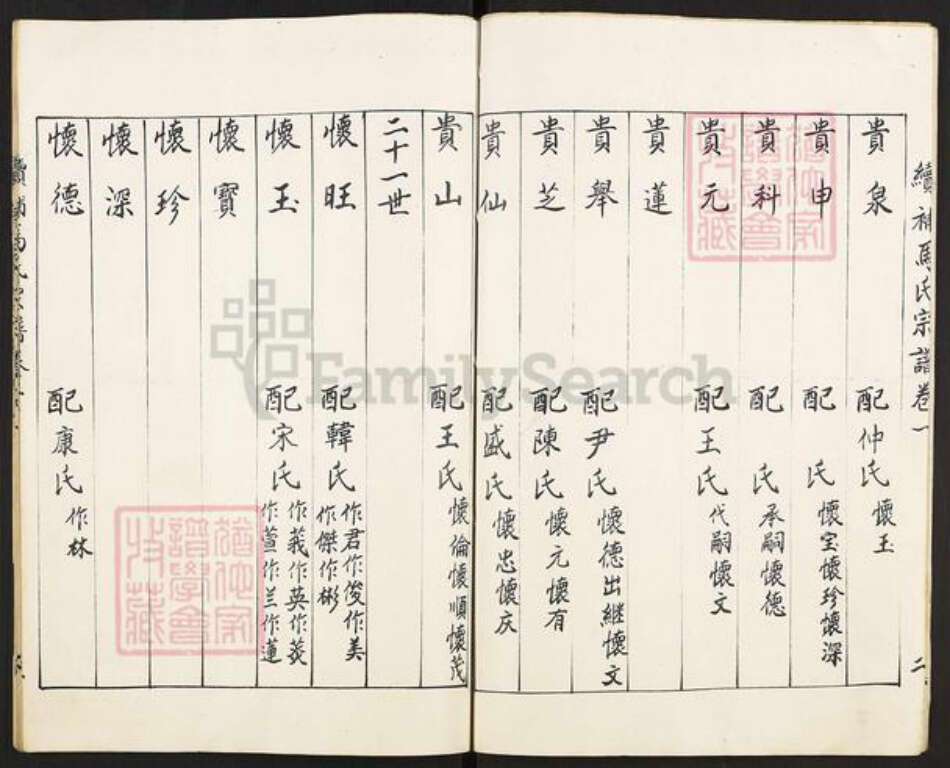 續補馬氏宗譜卷一
二
貴泉 配仲氏 懷玉
貴申 配 氏 懷宝懷珍懷深
貴科 配 氏 承嗣懷德
貴元 配王氏 代嗣懷文
貴蓮
貴舉 配尹氏 懷德出継懷文
貴芝 配陳氏 懷元懷有
貴仙 配盛氏 懷忠懷庆
貴山 配王氏 懷倫懷順懷茂
二十一世
懷旺 配韓氏 作君作俊作美
作傑作彬
懷玉 配宋氏 作義作英作芙
作萱作兰作蓮
懷寶
懷珍
懷深
懷德 配康氏 作林
FamilySearch